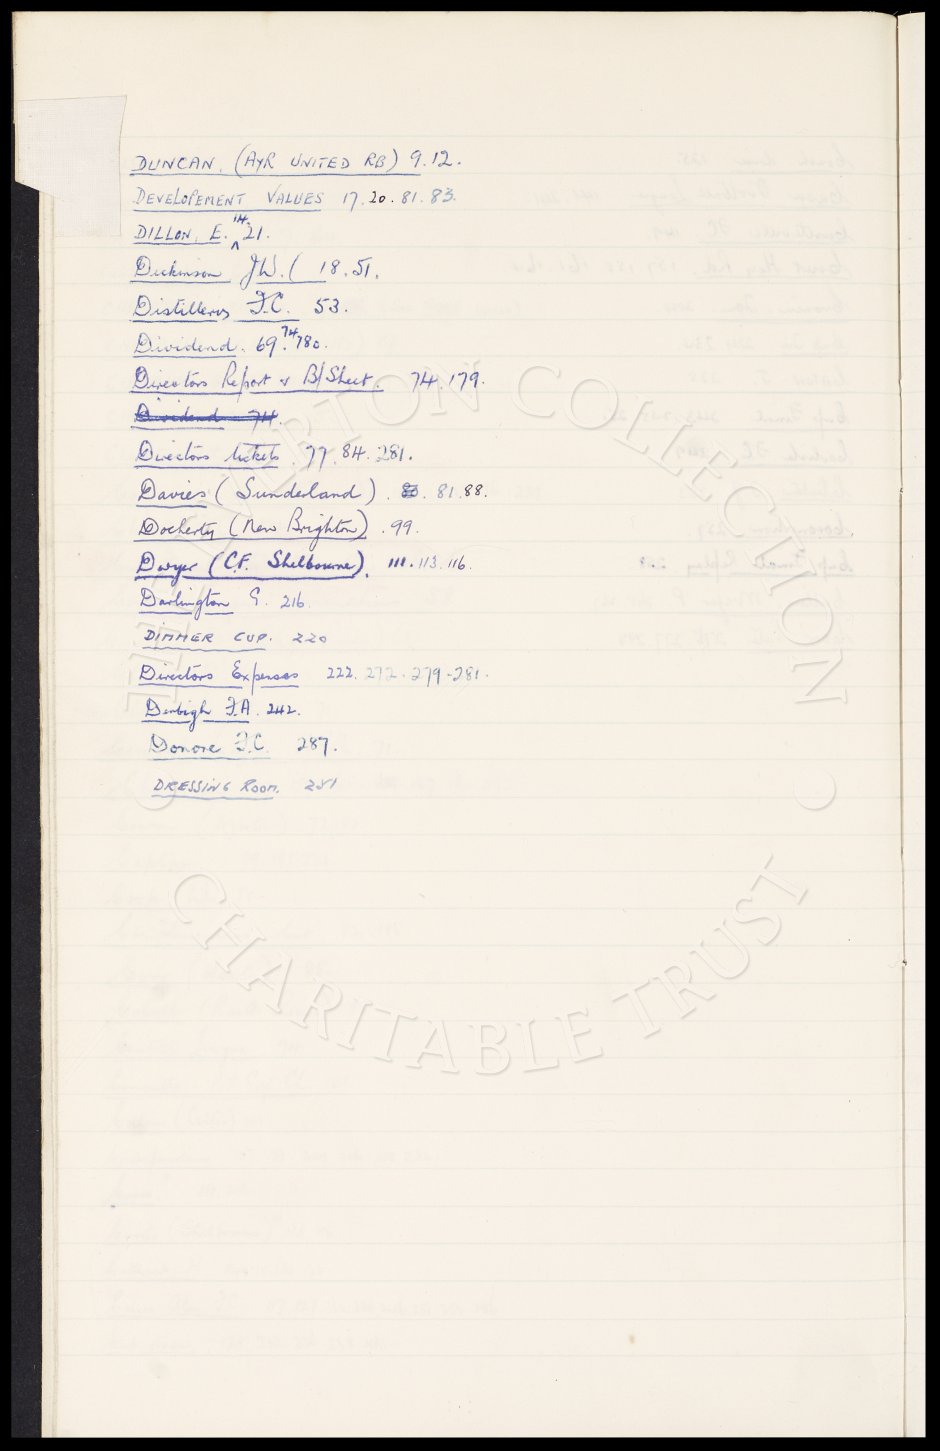 DUNCAN. (AYR UNITED RB) 9.12.
DEVELOPEMENT VALUES 17.20.81.83.
DILLON, E. 14. 21.
Dickinson J.W. ( 18.51.
Distillerys F.C. 53.
Dividend. 69. 74. 780.
Directors Report & B/Sheet. 74.179.
Dividend 74.
Directors tickets. 77.84.281.
Davies (Sunderland). 80. 81.88.
Docherty (New Brighton). 99.
Dwyer (C.F. Shelbourne). 111.113.116.
Darlington G. 216.
DIMMER CUP. 220
Directors Expenses 222.272.279-281.
Denbigh F.A. 242.
Donore F.C. 287.
DRESSING ROOM. 281
THE EVERTON COLLECTION
CHARITABLE TRUST